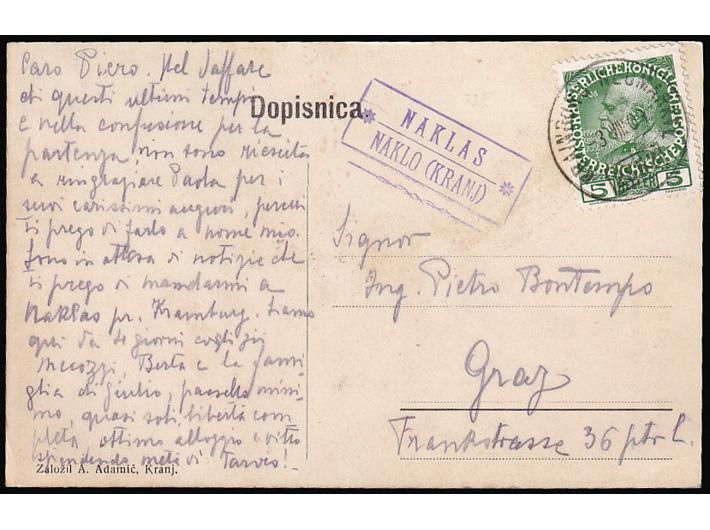 Caro Piero. Nel daffare
di questi ultimi tempi
e nella confusione per la
partenza, non sono riescita
a ringraziare Paola per i
suoi carissimi auguri, perciò
ti prego di farlo a nome mio.
Sono in attesa di notizie che
ti prego di mandarmi a
Naklas pr. Krainburg. Siamo
qui da 4 giorni cogli zii
Mecozzi, Berta e la fami-
glia di Giulio, paesello mini-
mo, quasi soli, libertà com-
pleta, ottimo alloggio e vitto
spendendo metà di Tarvis!
Založil A. Adamič, Kranj.
Dopisnica
* NAKLAS *
NAKLO (KRANJ)
KAISERLICHE KÖNIGLICHE
ÖSTERREICHISCHE POST
5 HELLER 5
KRAINBURG
Signor
Ing. Pietro Bontempo
Graz
Frankstrasse 36 ptr. l.